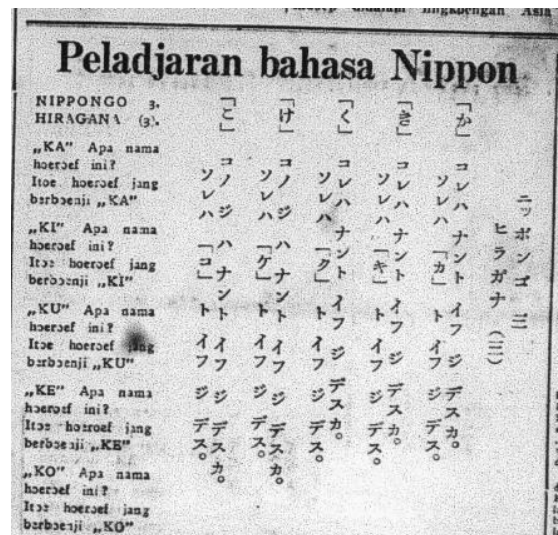 Asia
Peladjaran bahasa Nippon
NIPPONGO 3.
HIRAGANA (3).
„KA" Apa nama
hoeroef ini?
Itoe hoeroef jang
berboenji „KA"
„KI" Apa nama
hoeroef ini?
Itoe hoeroef jang
berboenji „KI"
„KU" Apa nama
hoeroef ini?
Itoe hoeroef jang
berboenji „KU"
„KE" Apa nama
hoeroef ini?
Itoe hoeroef jang
berboenji „KE"
„KO" Apa nama
hoeroef ini?
Itoe hoeroef jang
berboenji „KO"
ニッポンゴ 三
ヒラガナ (三)
「か」 コレハ ナント イフ ジ デスカ。
ソレハ 「カ」 ト イフ ジ デス。
「き」 コレハ ナント イフ ジ デスカ。
ソレハ 「キ」 ト イフ ジ デス。
「く」 コレハ ナント イフ ジ デスカ。
ソレハ 「ク」 ト イフ ジ デス。
「け」 コノ ジ ハ ナント イフ ジ デスカ。
ソレハ 「ケ」 ト イフ ジ デス。
「こ」 コノ ジ ハ ナント イフ ジ デスカ。
ソレハ 「コ」 ト イフ ジ デス。